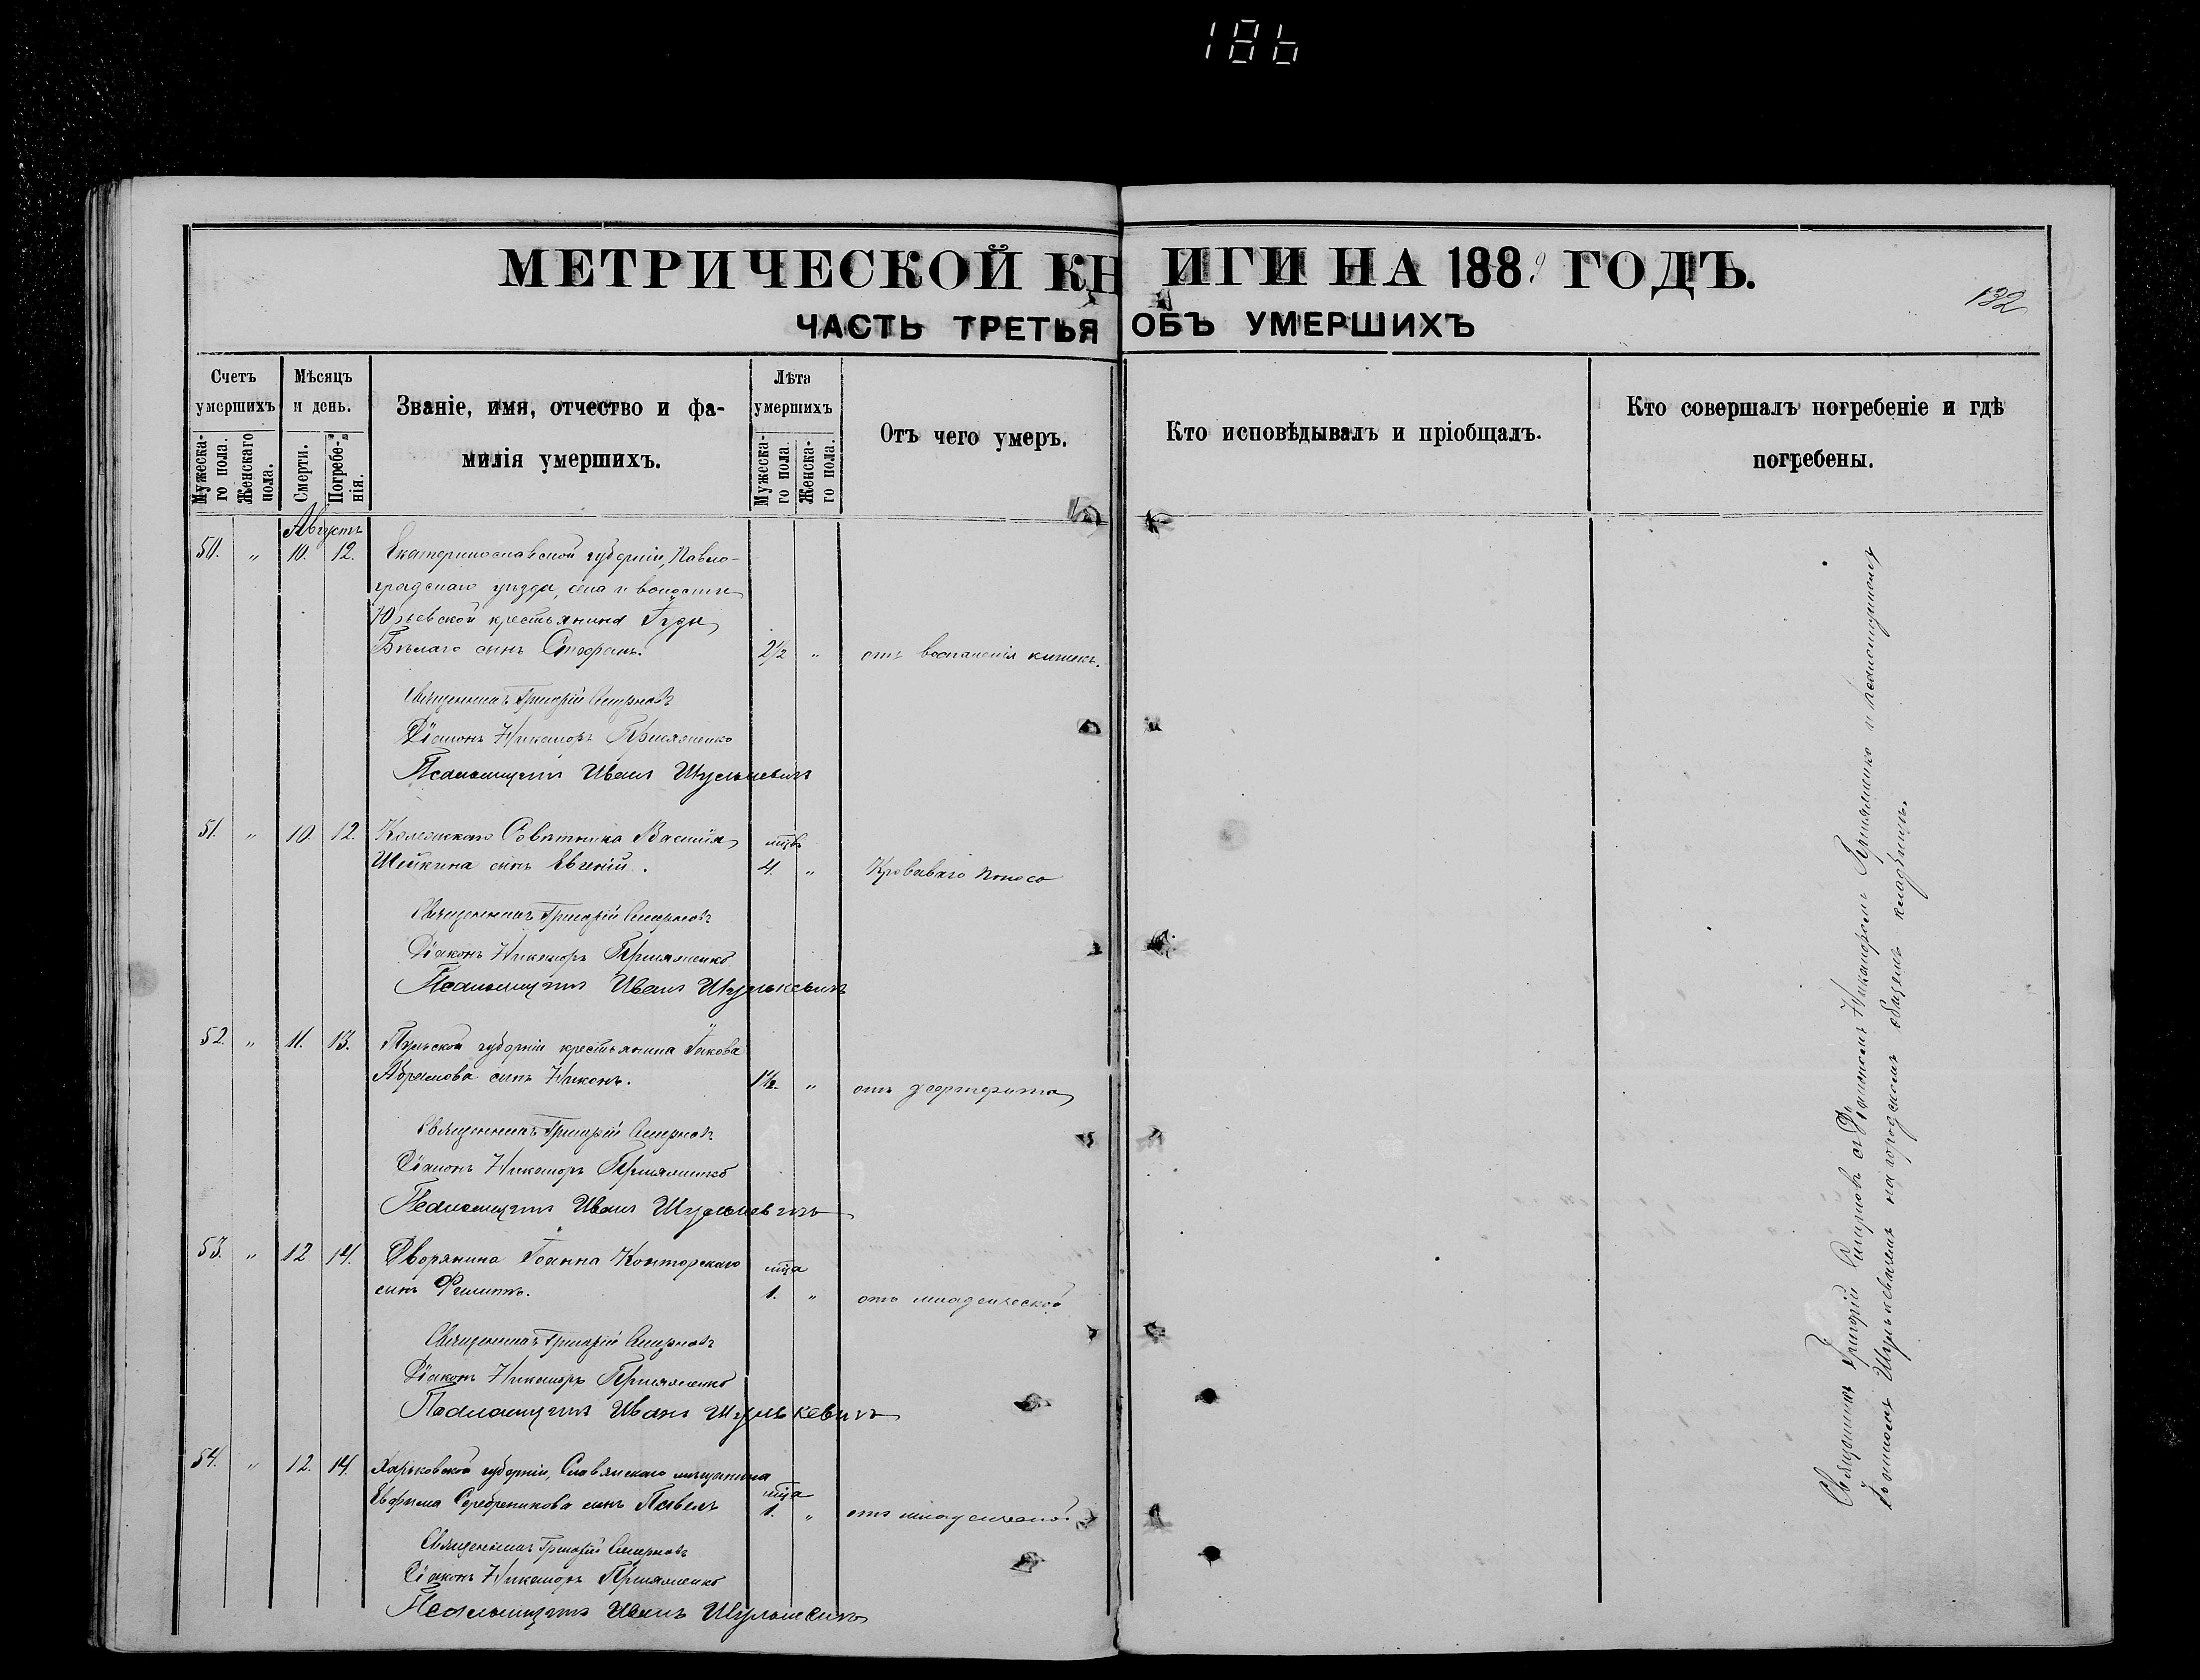 186
МЕТРИЧЕСКОЙ КНИГИ НА 1889 ГОДЪ.
132
ЧАСТЬ ТРЕТЬЯ ОБЪ УМЕРШИХЪ
Счетъ умершихъ
Мужеска-го пола.
Женскаго пола.
Мѣсяцъ и день.
Смерти.
Погребе-нія.
Званіе, имя, отчество и фа-
милія умершихъ.
Лѣта умершихъ
Мужеска-го пола
Женска-го пола.
Отъ чего умеръ.
Кто исповѣдывалъ и пріобщалъ.
Кто совершалъ погребеніе и гдѣ
погребены.
Августъ
50. " 10. 12. Екатеринославской губерніи, Павло-
градскаго уѣзда, села и волости
Юрьевской крестьянина
Бѣлаго сынъ Стефанъ. 2½ " отъ воспаленія кишекъ.
Священникъ Григорій Смирновъ
Діаконъ Никаноръ Прияменко
Псаломщикъ Иванъ Шулькевичъ
51. " 10. 12. Коллежскаго Совѣтника Василія
Шейкина сынъ Евгеній. мцѣв 4. " Кроваваго поноса
Священникъ Григорій Смирновъ
Діаконъ Никаноръ Прияменко
Псаломщикъ Иванъ Шулькевичъ
52. " 11. 13. Тульской губерніи крестьянина Іакова
Абрамова сынъ Никонъ. 1½. " отъ дефтерита
Священникъ Григорій Смирновъ
Діаконъ Никаноръ Прияменко
Псаломщикъ Иванъ Шулькевичъ
53. " 12 14. Дворянина Іоанна Конторскаго
сынъ Филиппъ. мца 1. " отъ младенческой
Священникъ Григорій Смирновъ
Діаконъ Никаноръ Прияменко
Псаломщикъ Иванъ Шулькевичъ
54. " 12. 14. Харьковской губерніи, Славянскаго мѣщанина
Евфима Серебреникова сынъ Павелъ мца 1. " отъ младенческой
Священникъ Григорій Смирновъ
Діаконъ Никаноръ Прияменко
Псаломщикъ Иванъ Шулькевичъ
Священникъ Григорій Смирновъ съ Діакономъ Никаноромъ Прияменко и псаломщикомъ
Іоанномъ Шулькевичемъ на городскомъ общемъ кладбищѣ.